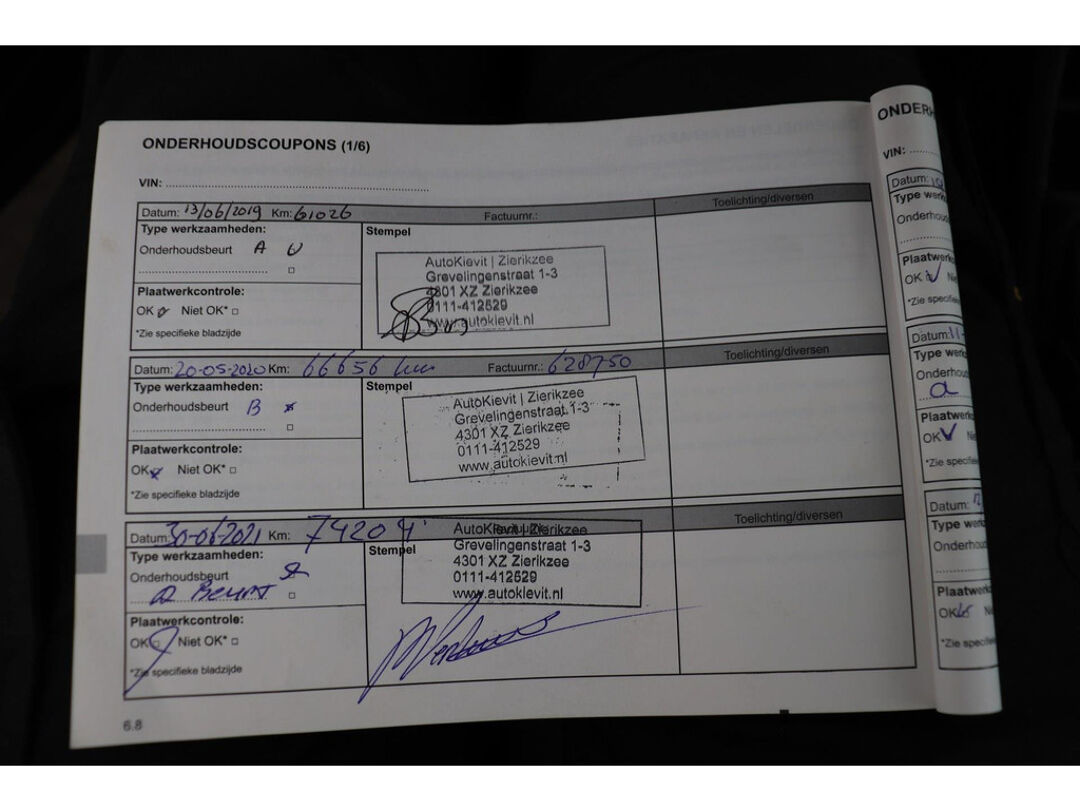 ONDERHOUDSCOUPONS (1/6)
VIN:
Datum: 13/06/2019 Km: 61026 Factuurnr.: Toelichting/diversen
Type werkzaamheden:
Stempel
Onderhoudsbeurt A
AutoKievit | Zierikzee
Grevelingenstraat 1-3
4301 XZ Zierikzee
0111-412529
www.autokievit.nl
Plaatwerkcontrole:
OK Niet OK*
*Zie specifieke bladzijde
Datum: 20-05-2020 Km: 66656 km Factuurnr.: 628750 Toelichting/diversen
Type werkzaamheden:
Stempel
Onderhoudsbeurt B x
AutoKievit | Zierikzee
Grevelingenstraat 1-3
4301 XZ Zierikzee
0111-412529
www.autokievit.nl
Plaatwerkcontrole:
OK x Niet OK*
*Zie specifieke bladzijde
Datum: 30-06/2021 Km: 74204 Factuurnr.: Toelichting/diversen
Type werkzaamheden:
Stempel
Onderhoudsbeurt
a Beurt
AutoKievit | Zierikzee
Grevelingenstraat 1-3
4301 XZ Zierikzee
0111-412529
www.autokievit.nl
Plaatwerkcontrole:
OK Niet OK*
*Zie specifieke bladzijde
6.8
ONDERH
VIN:
Datum:
Type werk
Onderhoud
Plaatwerk
OK Ni
*Zie specifi
Datum: 11-
Type werk
Onderhoud
a
Plaatwerk
OK Ni
*Zie specifi
Datum: 12
Type werk
Onderhoud
Plaatwerk
OK Ni
*Zie specifi